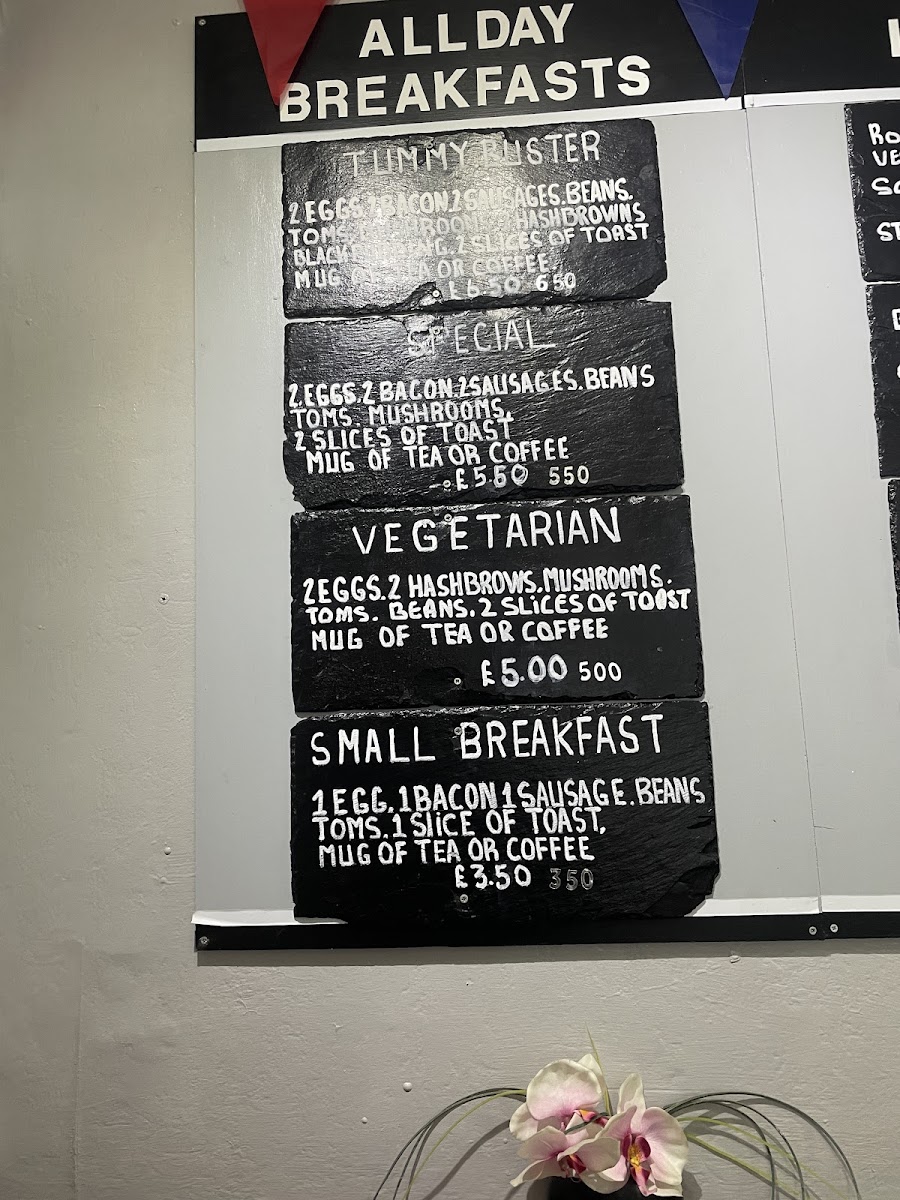 ALL DAY
BREAKFASTS
TUMMY BUSTER
2 EGGS. 2 BACON. 2 SAUSAGES. BEANS.
TOMS. HASHBROWNS
BLACK PUDDING. 2 SLICES OF TOAST
MUG OF TEA OR COFFEE
£6.50 650
SPECIAL
2.EGGS. 2 BACON. 2SAUSAGES. BEANS
TOMS. MUSHROOMS.
2 SLICES OF TOAST
MUG OF TEA OR COFFEE
£5.50 550
VEGETARIAN
2EGGS. 2 HASHBROWS. MUSHROOMS.
TOMS. BEANS. 2 SLICES OF TOAST
MUG OF TEA OR COFFEE
£5.00 500
SMALL BREAKFAST
1 EGG. 1 BACON 1 SAUSAGE. BEANS
TOMS. 1 SliCE OF TOAST,
MUG OF TEA OR COFFEE
£3.50 350